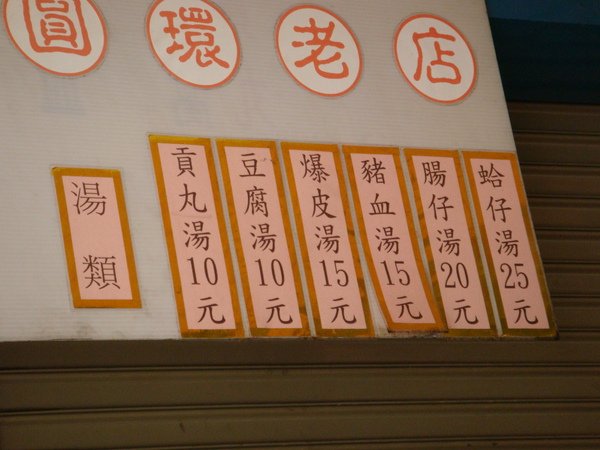 圓環老店
湯類
貢丸湯10元
豆腐湯10元
爆皮湯15元
豬血湯15元
腸仔湯20元
蛤仔湯25元